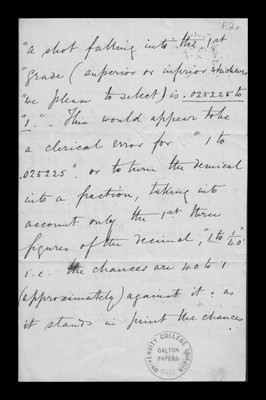 "a shot falling into the 1st
"grade (superior or inferior whichever
"we please to select) is .025225 to
"1." – This would appear to be
a clerical error for "1 to
.025225" or to turn the decimal
into a fraction, taking into
account only the 1st three
figures of the decimal, "1 to 1/40"
i.e. the chances are 40 to 1
(approximately) against it: as
it stands in print the chances
UNIVERSITY COLLEGE LONDON
GALTON
PAPERS